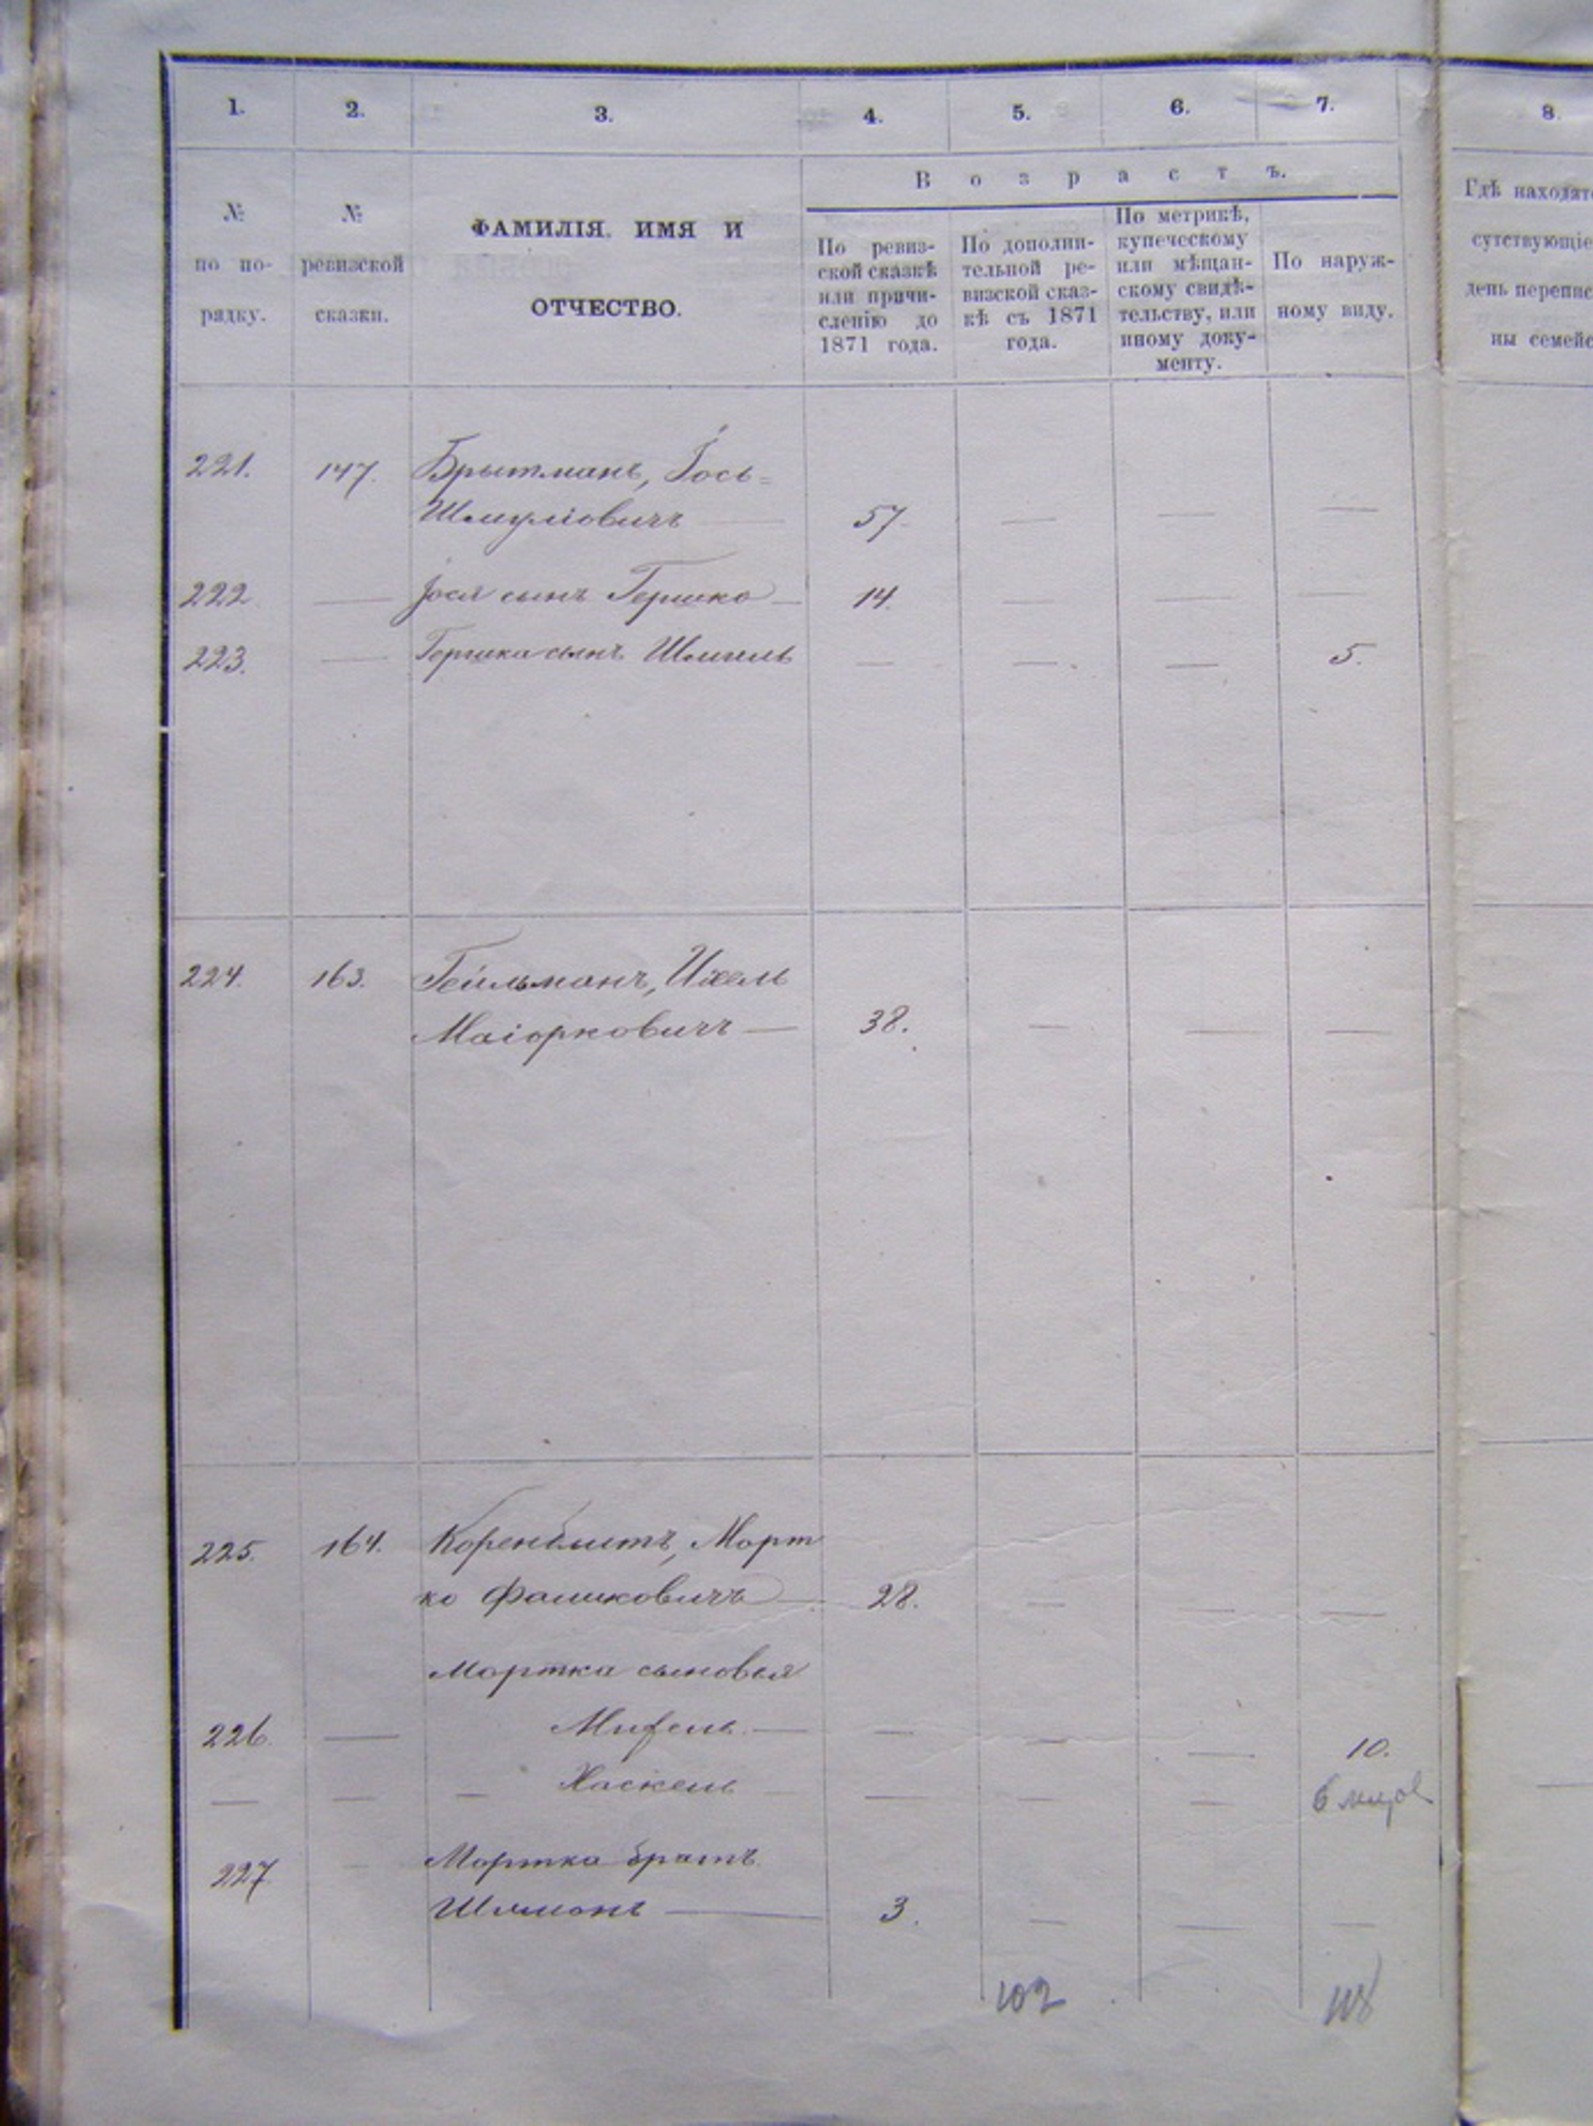 1. 2. 3. 4. 5. 6. 7. 8.
№ по по- рядку.
№ ревизской сказки.
ФАМИЛІЯ, ИМЯ И
ОТЧЕСТВО.
Возрастъ.
По ревиз-
ской сказкѣ
или причи-
сленію до
1871 года.
По дополни-
тельной ре-
визской сказ-
кѣ съ 1871
года.
По метрикѣ,
купеческому
или мѣщан-
скому свидѣ-
тельству, или
иному доку-
менту.
По наруж-
ному виду.
Гдѣ находят
сутствующіе
день перепис
ны семейс
221. 147. Брытманъ, Іось=
Шмуліовичъ — 57 — — —
222 — Іося сынъ Гершко — 14. — — —
223. — Гершка сынъ Шмиль — — — 5.
224. 163. Гейльманъ, Ихель
Маіорковичъ — 38. — — —
225. 164. Коренблитъ, Морт
ко Фаликовичъ — 28. — — —
Мортка сыновья
226. — — — — 10.
— — — Хаскель — — — — 6
227 — Мортка братъ
Шлиома — 3. — — —
102 118